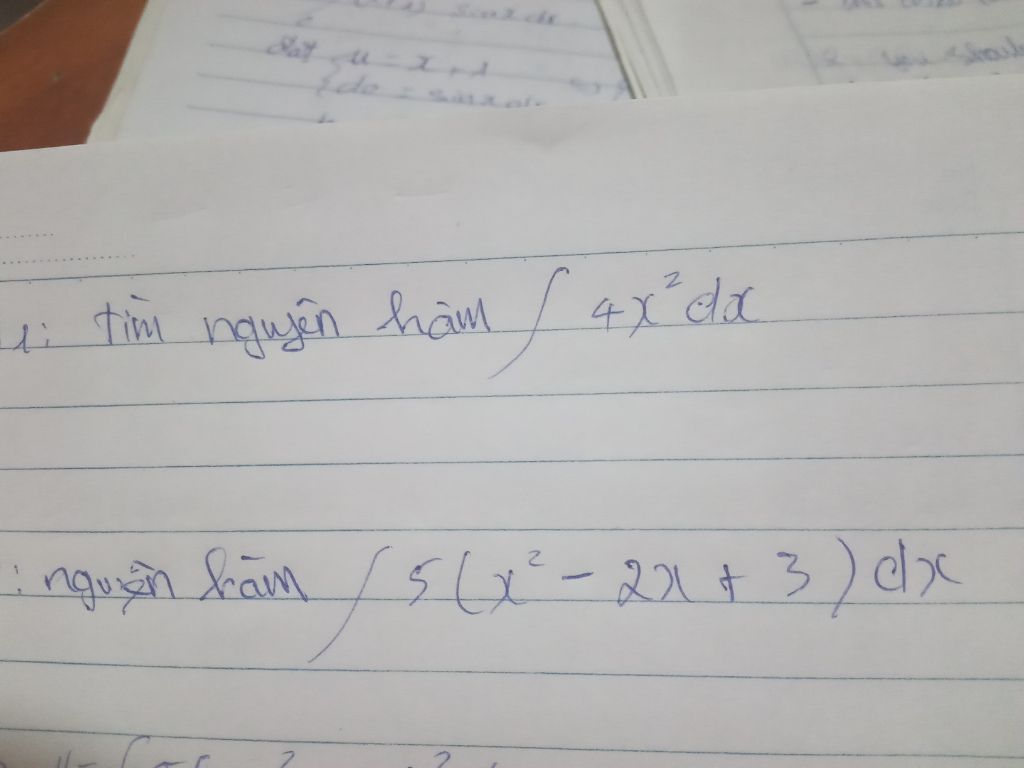 sinx dx
Đặt u = x + 1
dv = sinx dx
1: tìm nguyên hàm ∫ 4x² dx
: nguyên hàm ∫ 5(x² - 2x + 3) dx